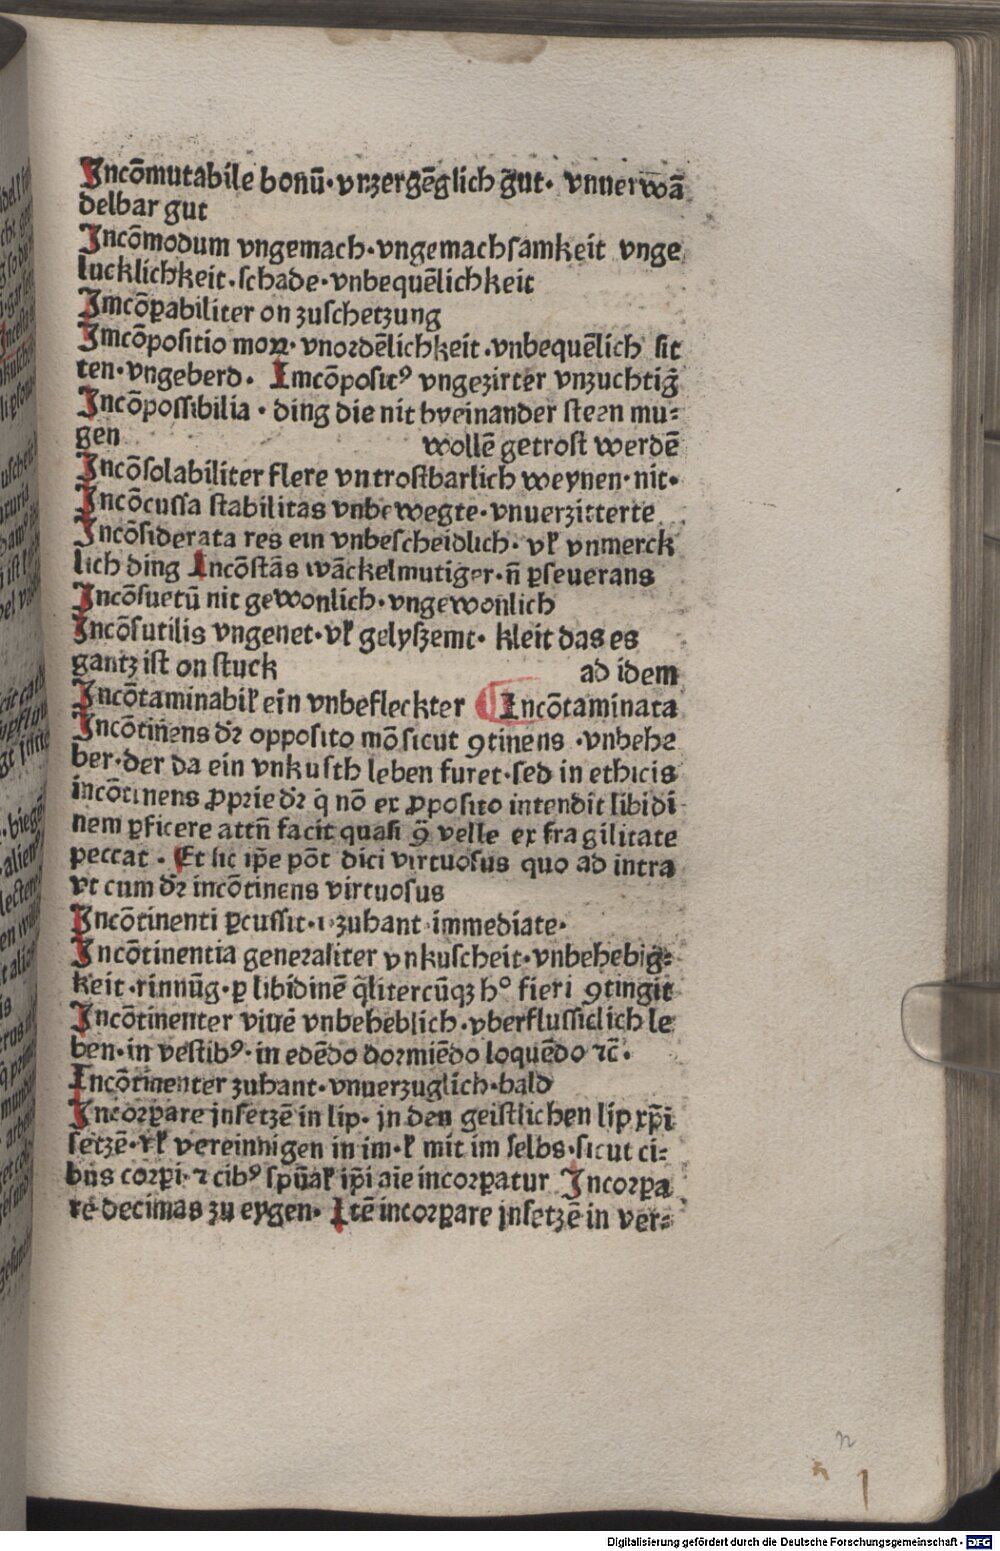 Incōmutabile bonū·vnzergēglich gut· vnuerwā
delbar gut
Incōmodum vngemach·vngemachsamkeit vnge
lucklichkeit·schade·vnbequēlichkeit
Imcōꝑabiliter on zuschetzung
Imcōpositio moꝝ· vnordēlichkeit·vnbequēlich sit
ten·vngeberd· Imcōpositꝰ vngezirter vnzuchtig
Incōpossibilia · ding die nit byeinander steen mu⸗
gen wollē getrost werdē
Incōsolabiliter flere vntrostbarlich weynen·nit·
Incōcussa stabilitas vnbewegte·vnuerzitterte
Incōsiderata res ein vnbescheidlich· vł vnmerck
lich ding Incōstās wāckelmutiger·ñ ꝑseuerans
Incōsuetū nit gewonlich·vngewonlich
Incōsutilis vngenet·vł gelyszemt· kleit das es
gantz ist on stuck ad idem
Incōtaminabił ein vnbefleckter Incōtaminata
Incōtinens dr̄ opposito mō sicut ꝯtinens ·vnbehe
ber·der da ein vnkusch leben furet·sed in ethicis
incōtinens ꝓprie dr̄ q̇ nō ex ꝓposito intendit libidi
nem ꝑficere attñ facit quasi ꝯ̄ velle ex fragilitate
peccat · Et sic ip̄e pōt dici virtuosus quo ad intra
vt cum dr̄ incōtinens virtuosus
Incōtinenti ꝑcussit·i·zuhant·immediate·
Incōtinentia generaliter vnkuscheit·vnbehebig⸗
keit·rinnūg·ꝑ libidinē q̄litercūqꝫ hº fieri ꝯtingit
Incōtinenter viuē vnbeheblich·vberflussiclich le
ben·in vestibꝰ·in edēdo dormiēdo loquēdo ⁊c̄·
Incōtinenter zuhant·vnuerzuglich·bald
Incorꝑare jnsetzē in lip· jn den geistlichen lip xp̄i
setzē·vł vereinnigen in im·ł mit im selbs·sicut ci⸗
bus corꝑi·⁊ cibꝰ sp̄uał ip̄i aīe incorꝑatur Incorꝑa
re decimas zu eygen· Itē incorꝑare jnsetzē in ver⸗
n
1
Digitalisierung gefördert durch die Deutsche Forschungsgemeinschaft - DFG